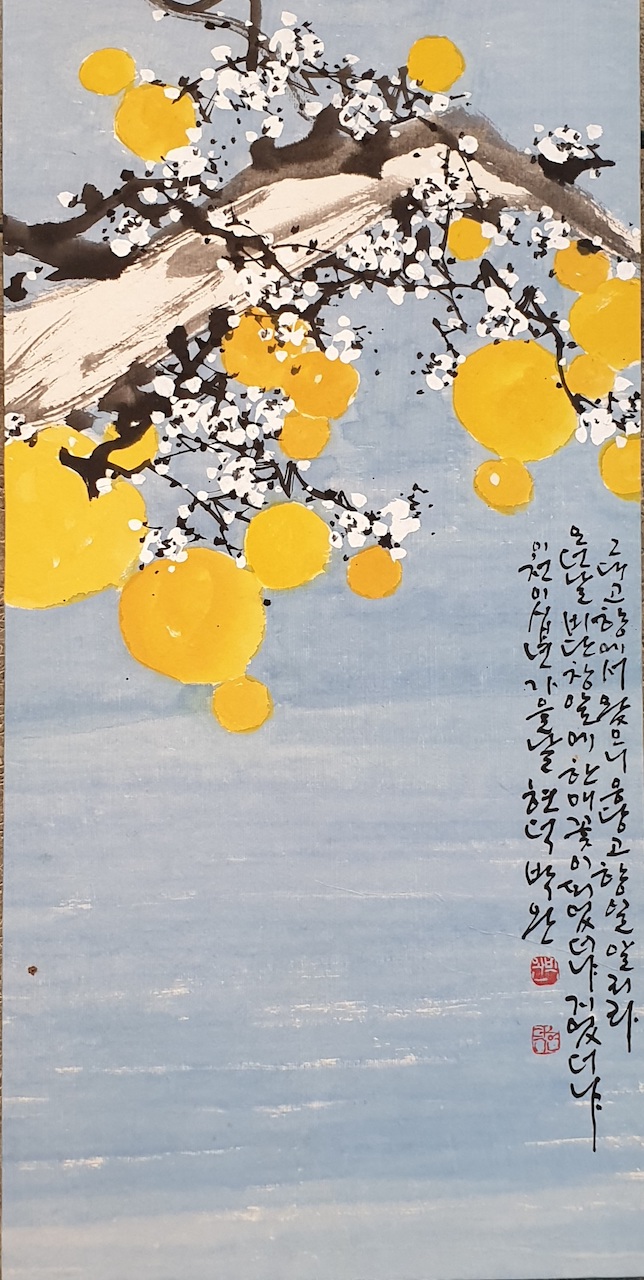 그대 고향에서 왔으니 응당 고향일 알리라
오던날 비단창 앞에 한매 꽃이 피었더냐 지었더냐
이천이십년 가을날 현덕 박완